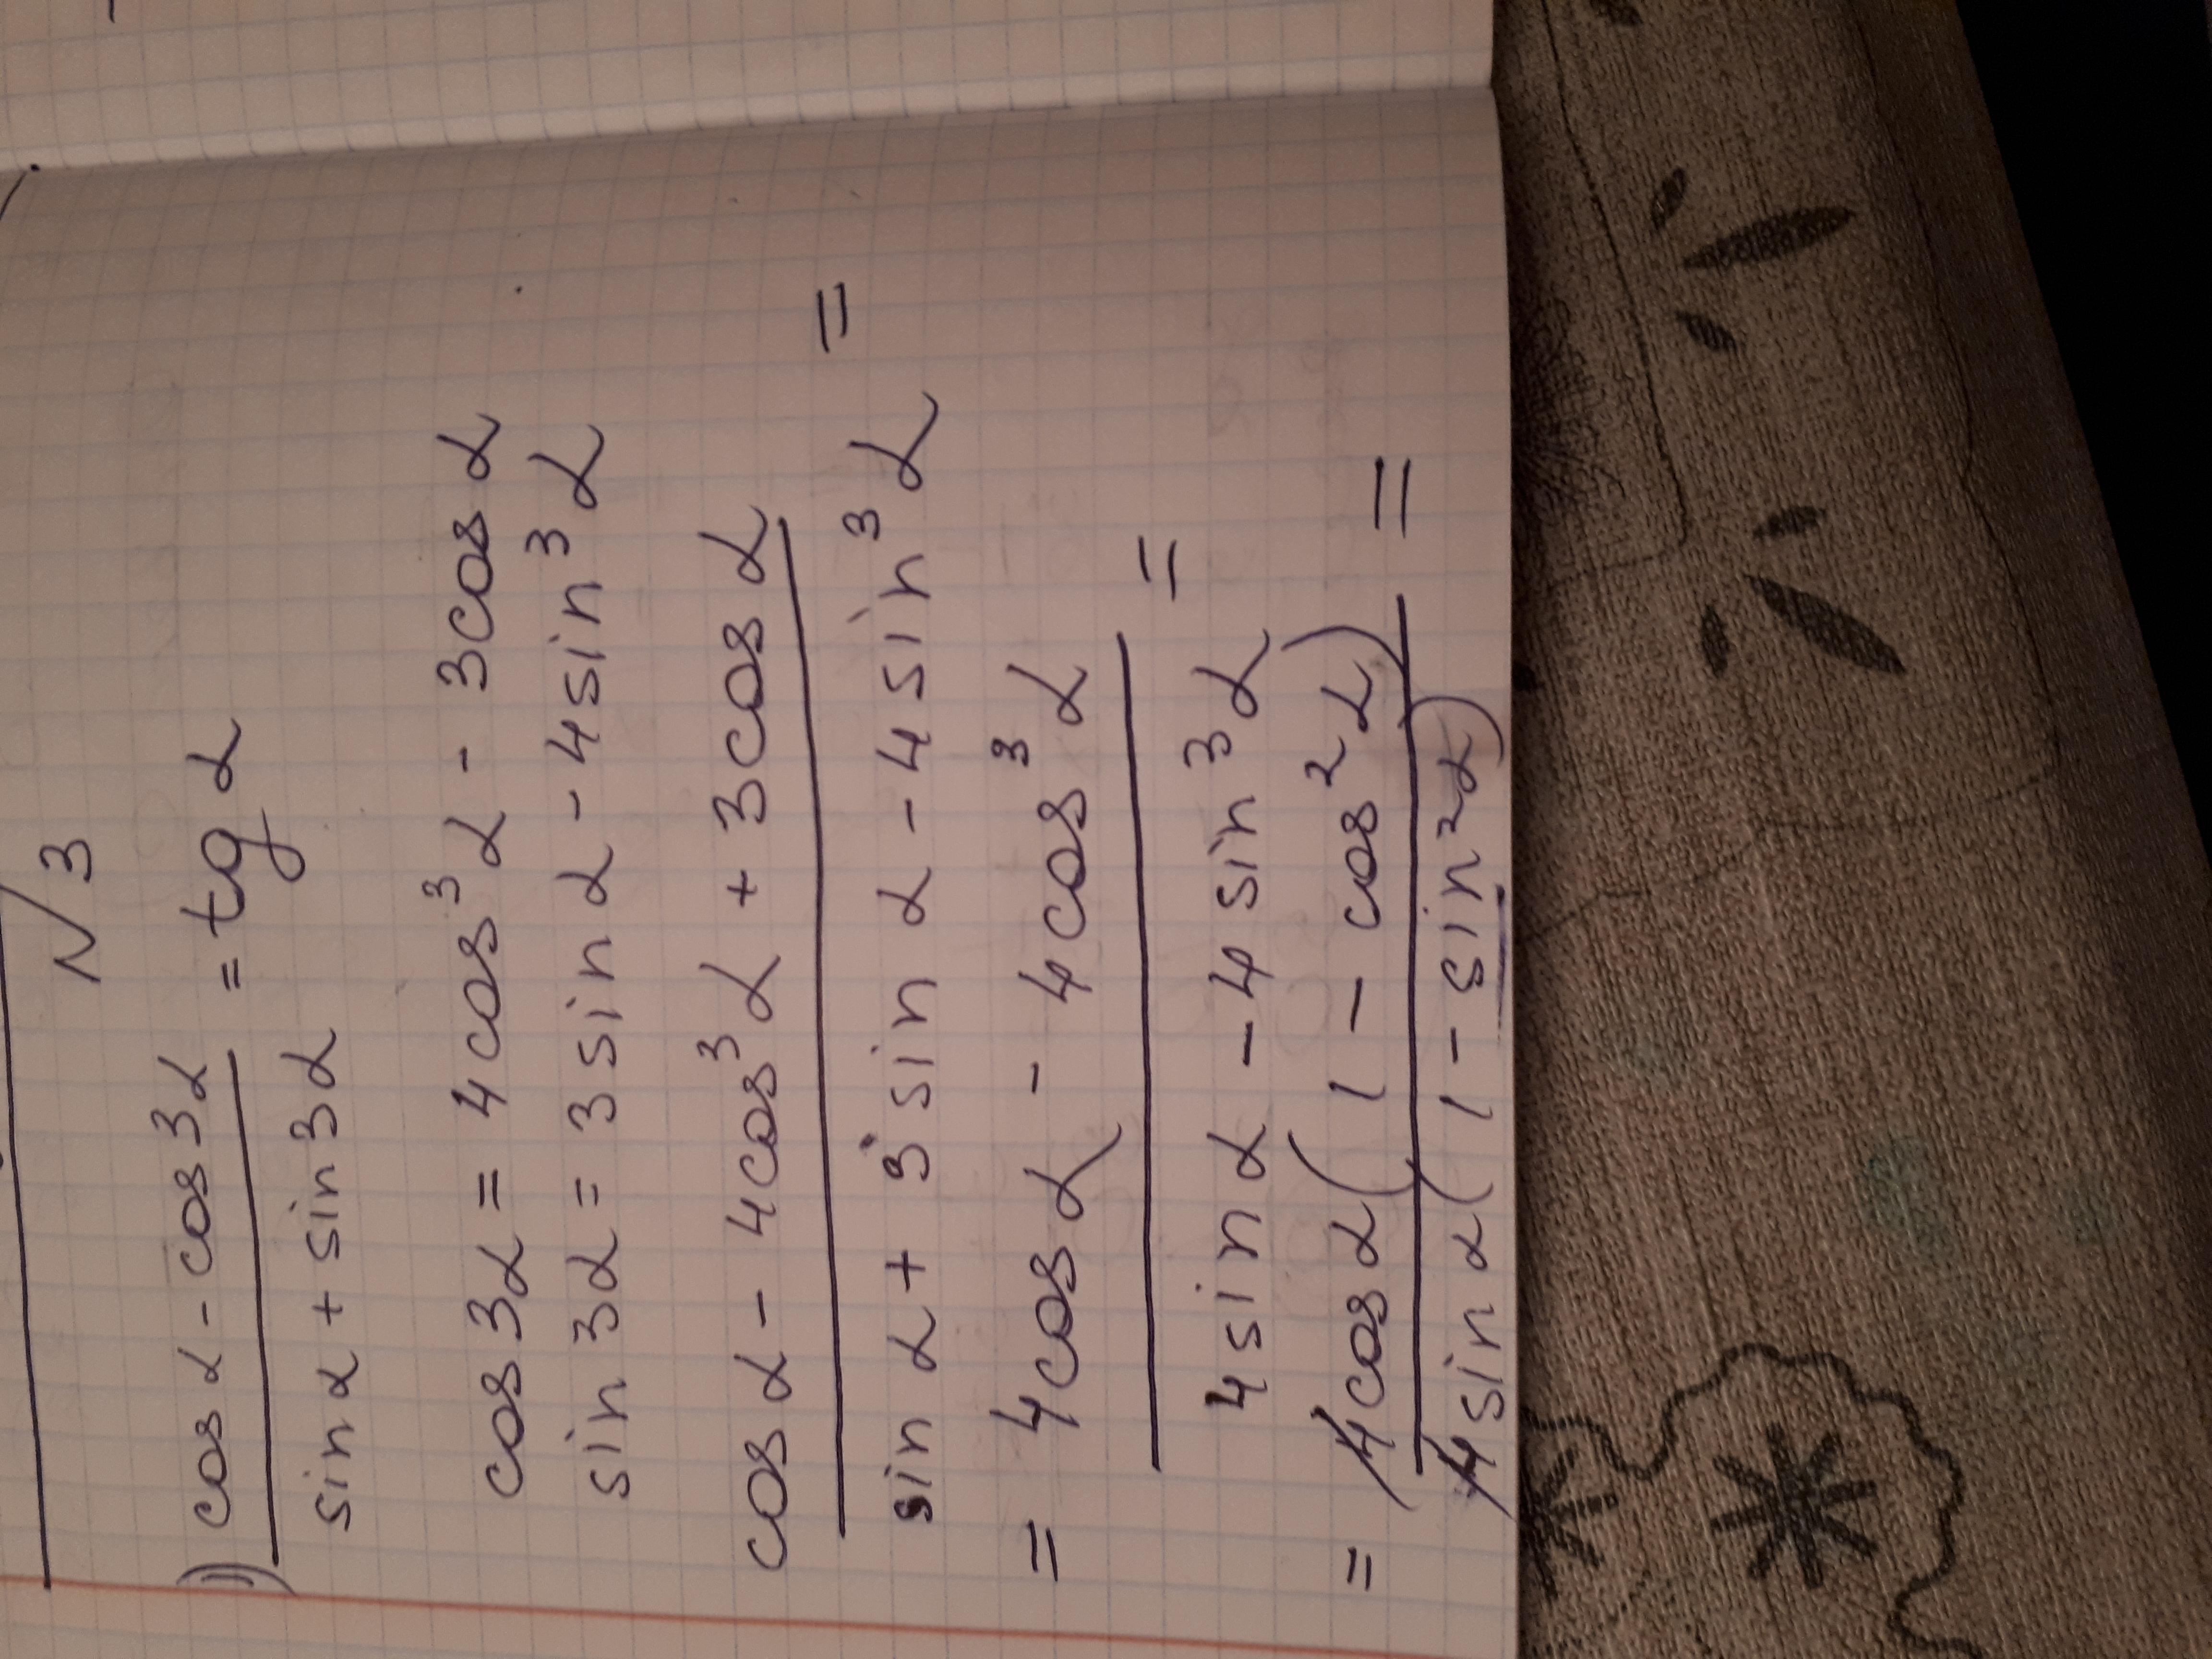 N 3
1) (cos α - cos 3α) / (sin α + sin 3α) = tg α
cos 3α = 4cos³α - 3cos α
sin 3α = 3sin α - 4sin³α
(cos α - 4cos³α + 3cos α) / (sin α + 3sin α - 4sin³α) =
= (4cos α - 4cos³α) / (4sin α - 4sin³α) =
= 4cos α(1 - cos²α) / 4sin α(1 - sin²α) =